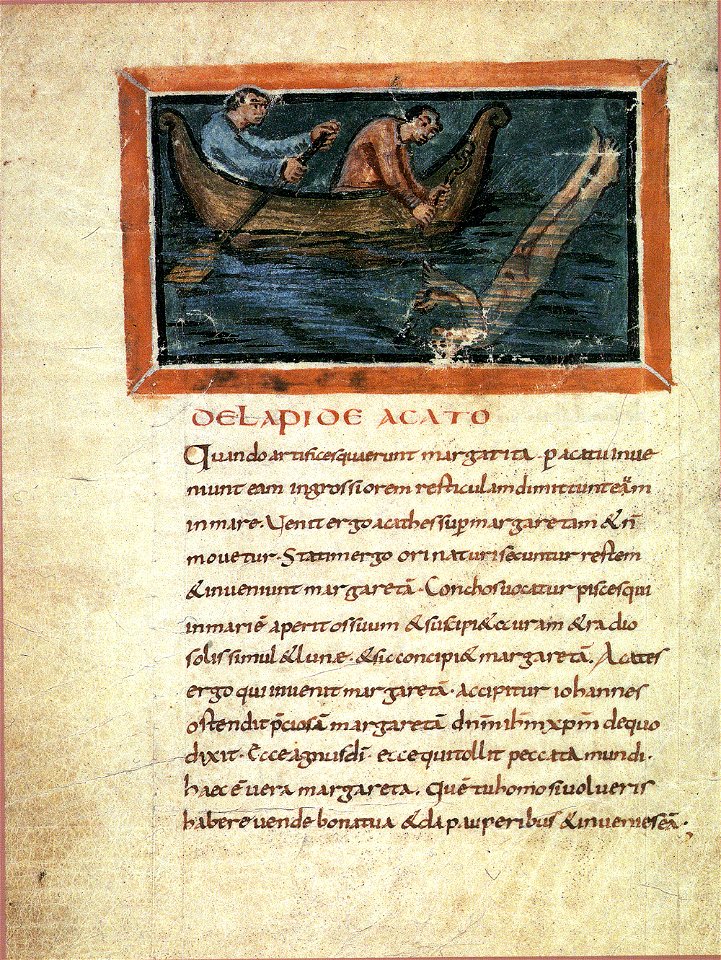 DE LAPIDE ACATO
Quando artifices quaerunt margarita · p acatū inve
niunt eam in grossiorem resticulam dimittunt eā
in mare · Venit ergo acathes sup margaretam & ñ
movetur · Statim ergo orinaturi secuntur restem
& inveniunt margaretā · Conchos vocatur piscesqui
in mari ē aperit os suum & suscipi& & radio
solis simul & lunæ · & sic concipi& margaretā. Acates
ergo qui invenit margaretā · accipitur iohannes
ostendit p̄ciosā margaretā dnm̄ ihm̄ xpm̄ de quo
dixit · Ecce agnus dī · ecce qui tollit peccata mundi ·
haec ē vera margareta. Quē tu homo si volveris
habere vende bona tua & da pauperibus & invenies eā ·